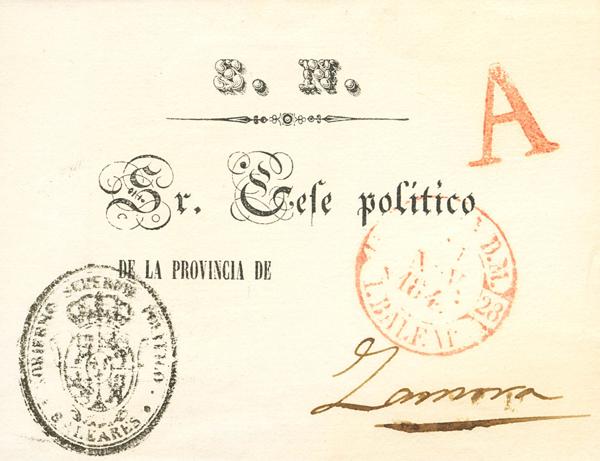 S. N.
A
Sr. Gefe político
DE LA PROVINCIA DE
D.M.
28
I. BALEAR
GOBIERNO SUPERIOR POLITICO
BALEARES
Zamora